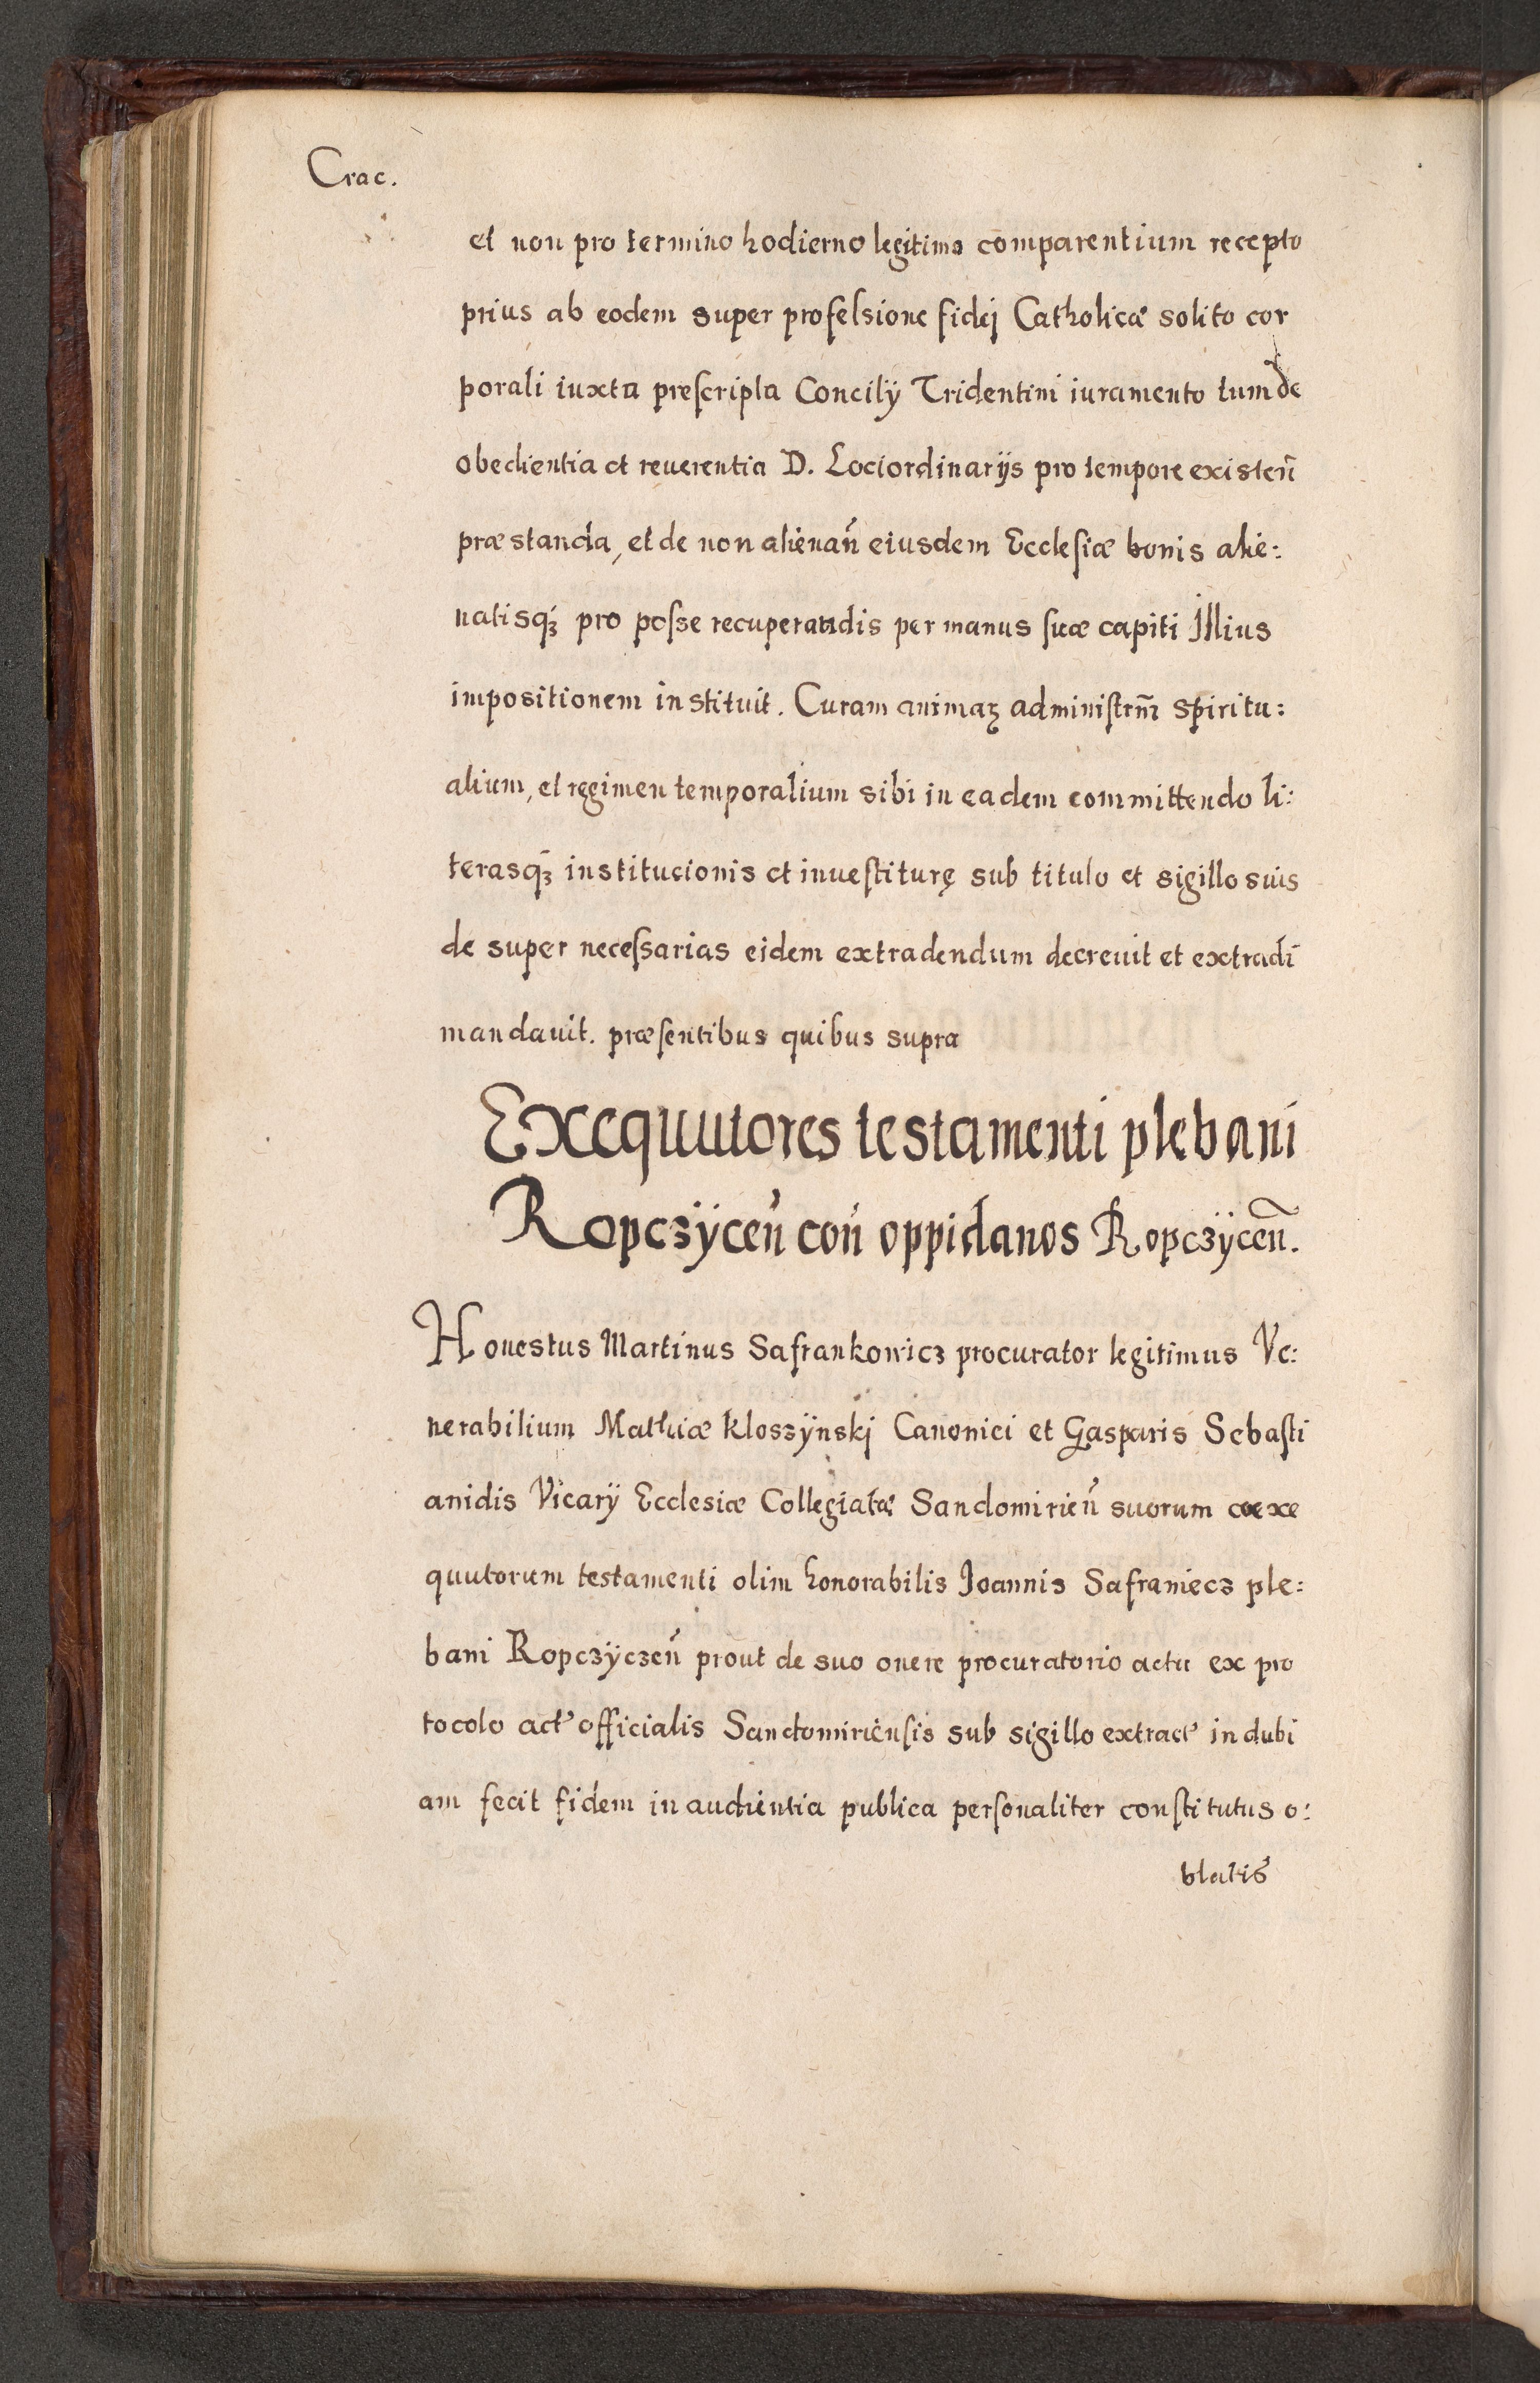 Crac.
et non pro termino hodierno legitimo comparentium recepto
prius ab eodem super professione fidej Catholicæ solito cor
porali iuxta prescripta Concilij Tridentini iuramento tum de
obedientia et reuerentia D. Lociordinarijs pro tempore existeñ
præstanda, et de non alienañ eiusdem Ecclesiæ bonis alie:
natisqꝫ pro posse recuperandis per manus suæ capiti Illius
impositionem instituit. Curam animaꝝ administrñ spiritu:
alium, et regimen temporalium sibi in eadem committendo li:
terasqꝫ institucionis et inuestiturę sub titulo et sigillo suis
de super necessarias eidem extradendum decreuit et extradi
mandauit. præsentibus quibus supra
Exequutores testamenti plebani
Ropczÿceñ coñ oppidanos Ropczÿceñ.
Honestus Martinus Safrankowicz procurator legitimus Ve:
nerabilium Mathiæ Kloszÿnskj Canonici et Gasparis Sebasti
anidis Vicarÿ Ecclesiæ Collegiatæ Sandomirieñ suorum coexe
quutorum testamenti olim honorabilis Joannis Safraniecz ple:
bani Ropczÿczeñ prout de suo onere procuratorio actu ex pro
tocolo act' officialis Sandomiriensis sub sigillo extract' indubi
am fecit fidem in audientia publica personaliter constitutus o:
blatis